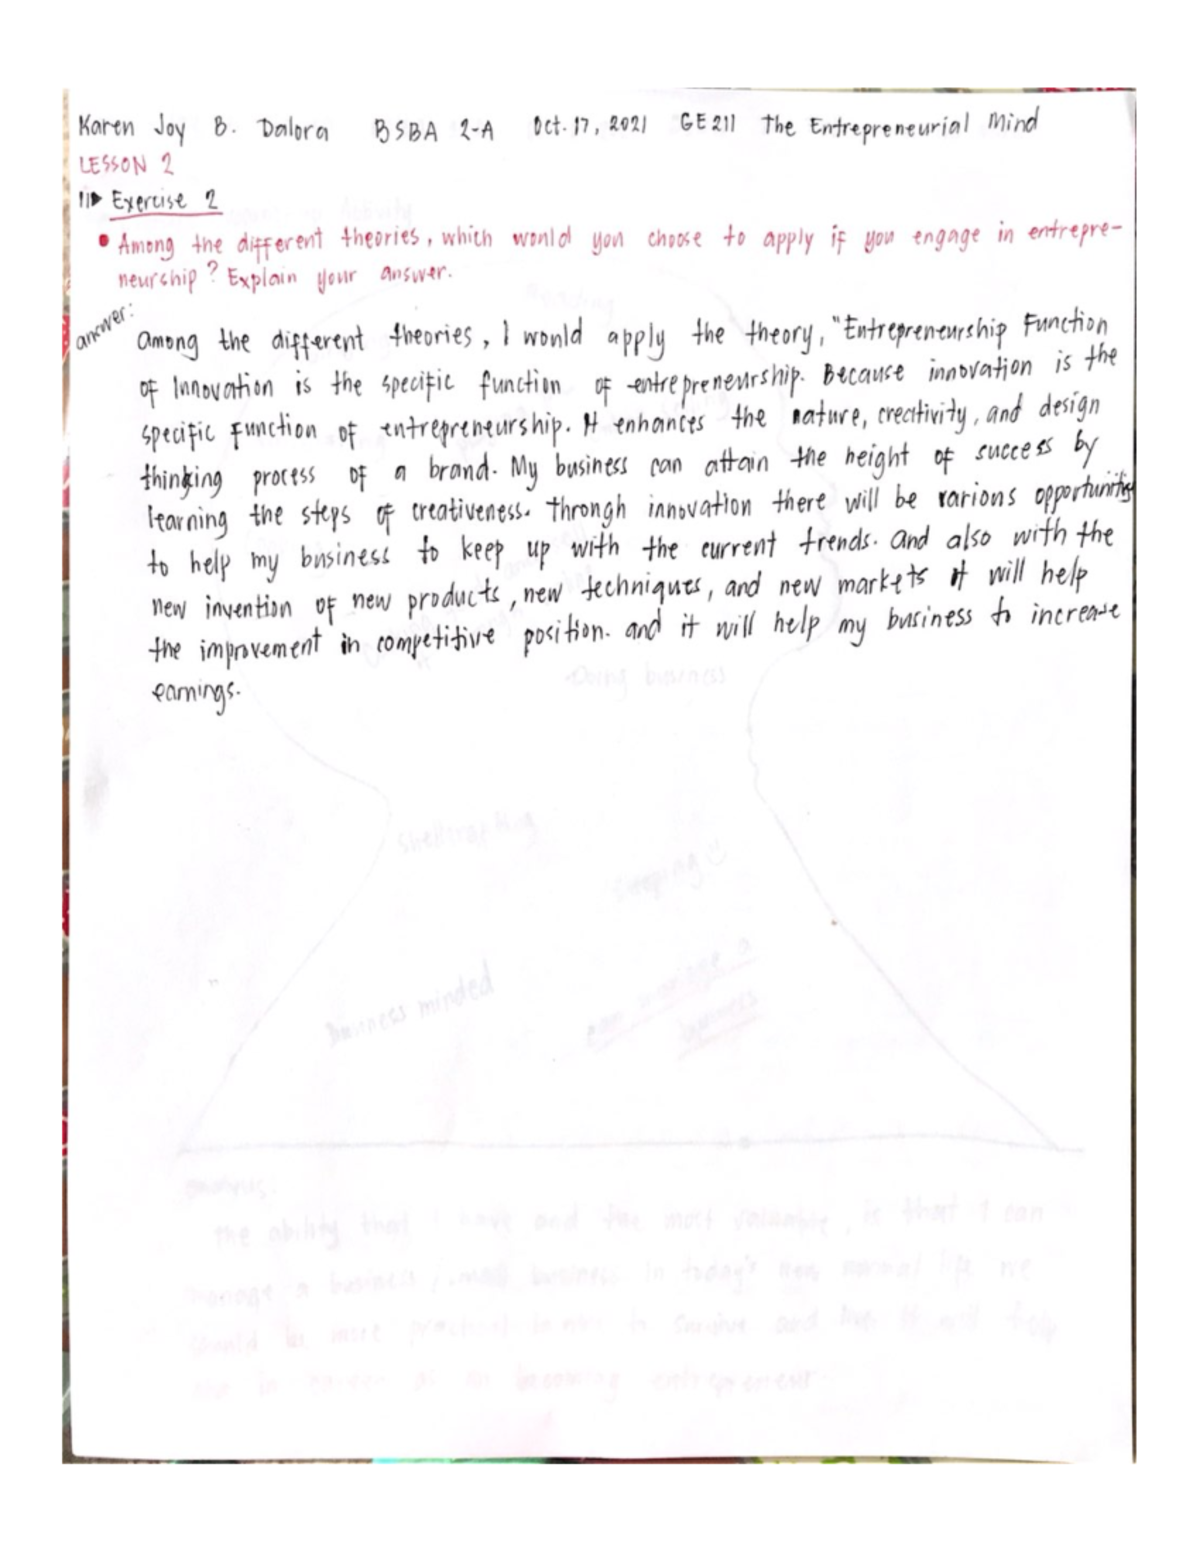 Karen Joy B. Dalora BSBA 2-A Oct. 17, 2021 GE211 The Entrepreneurial Mind
LESSON 2
Exercise 2
• Among the different theories, which would you choose to apply if you engage in entrepre-
neurship? Explain your answer.
answer:
Among the different theories, I would apply the theory, "Entrepreneurship Function
of Innovation is the specific function of entrepreneurship. Because innovation is the
specific function of entrepreneurship. It enhances the nature, creativity, and design
thinking process of a brand. My business can attain the height of success by
learning the steps of creativeness. Through innovation there will be various opportunity
to help my business to keep up with the current trends. And also with the
new invention of new products, new techniques, and new markets it will help
the improvement in competitive position. and it will help my business to increase
earnings.
Doing business
Business minded
the ability that I have and the most valuable, is that I can
manage a business / small business In today's new normal life we